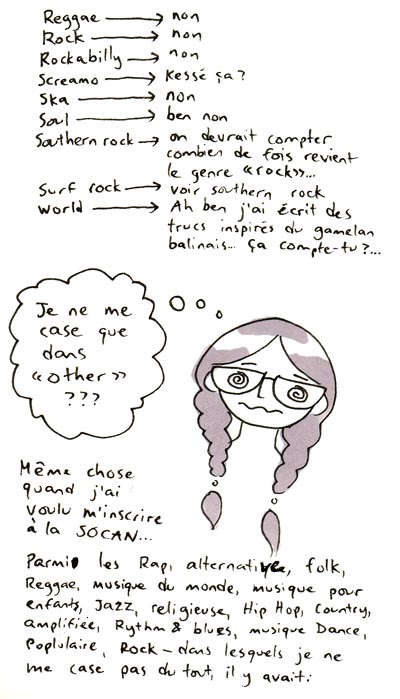 Reggae → non
Rock → non
Rockabilly → non
Screamo → Kessé ça?
Ska → non
Soul → ben non
Southern rock → on devrait compter
combien de fois revient
le genre «rock»...
Surf rock → voir southern rock
World → Ah ben j'ai écrit des
trucs inspirés du gamelan
balinais... ça compte-tu?...
Je ne me
case que
dans
«other»
???
Même chose
quand j'ai
voulu m'inscrire
à la SOCAN...
Parmi les Rap, alternative, folk,
Reggae, musique du monde, musique pour
enfants, Jazz, religieuse, Hip Hop, Country,
amplifiée, Rythm & blues, musique Dance,
Poplulaire, Rock – dans lesquels je ne
me case pas du tout, il y avait: